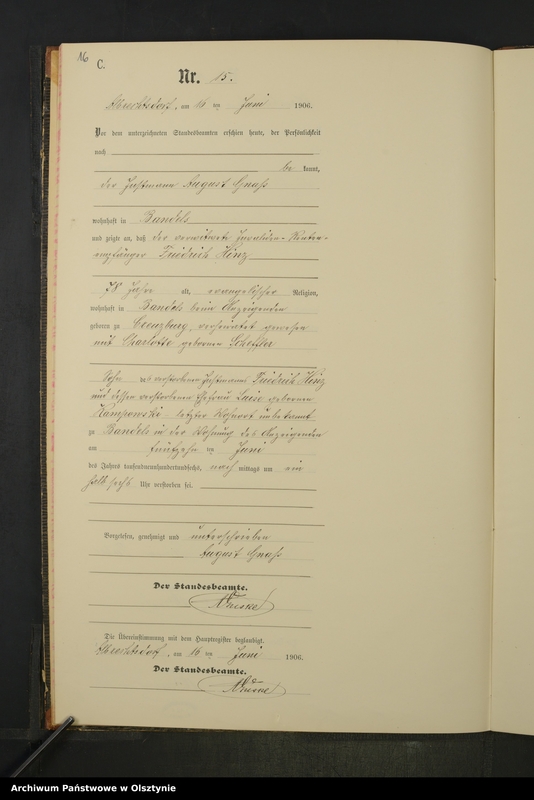 16
C.
Nr. 15.
Albrechtsdorf, am 16 ten Juni 1906.
Vor dem unterzeichneten Standesbeamten erschien heute, der Persönlichkeit
nach
be kannt,
der Instmann August Gnass
wohnhaft in Bandels
und zeigte an, daß der verwitwete Invaliden-Renten-
empfänger Friedrich Hinz
78 Jahre alt, evangelischer Religion,
wohnhaft in Bandels beim Anzeigenden
geboren zu Creuzburg, verheiratet gewesen
mit Charlotte geborenen Scheffler
Sohn des verstorbenen Instmanns Friedrich Hinz
und dessen verstorbenen Ehefrau Luise geborenen
letzter Wohnort unbekannt
zu Bandels in der Wohnung des Anzeigenden
am fünfzehn ten Juni
des Jahres tausendneunhundertundsechs, nach mittags um ein
halb sechs Uhr verstorben sei.
Vorgelesen, genehmigt und unterschrieben
August Gnass
Der Standesbeamte.
Die Übereinstimmung mit dem Hauptregister beglaubigt.
Albrechtsdorf, am 16 ten Juni 1906.
Der Standesbeamte.
Archiwum Państwowe w Olsztynie